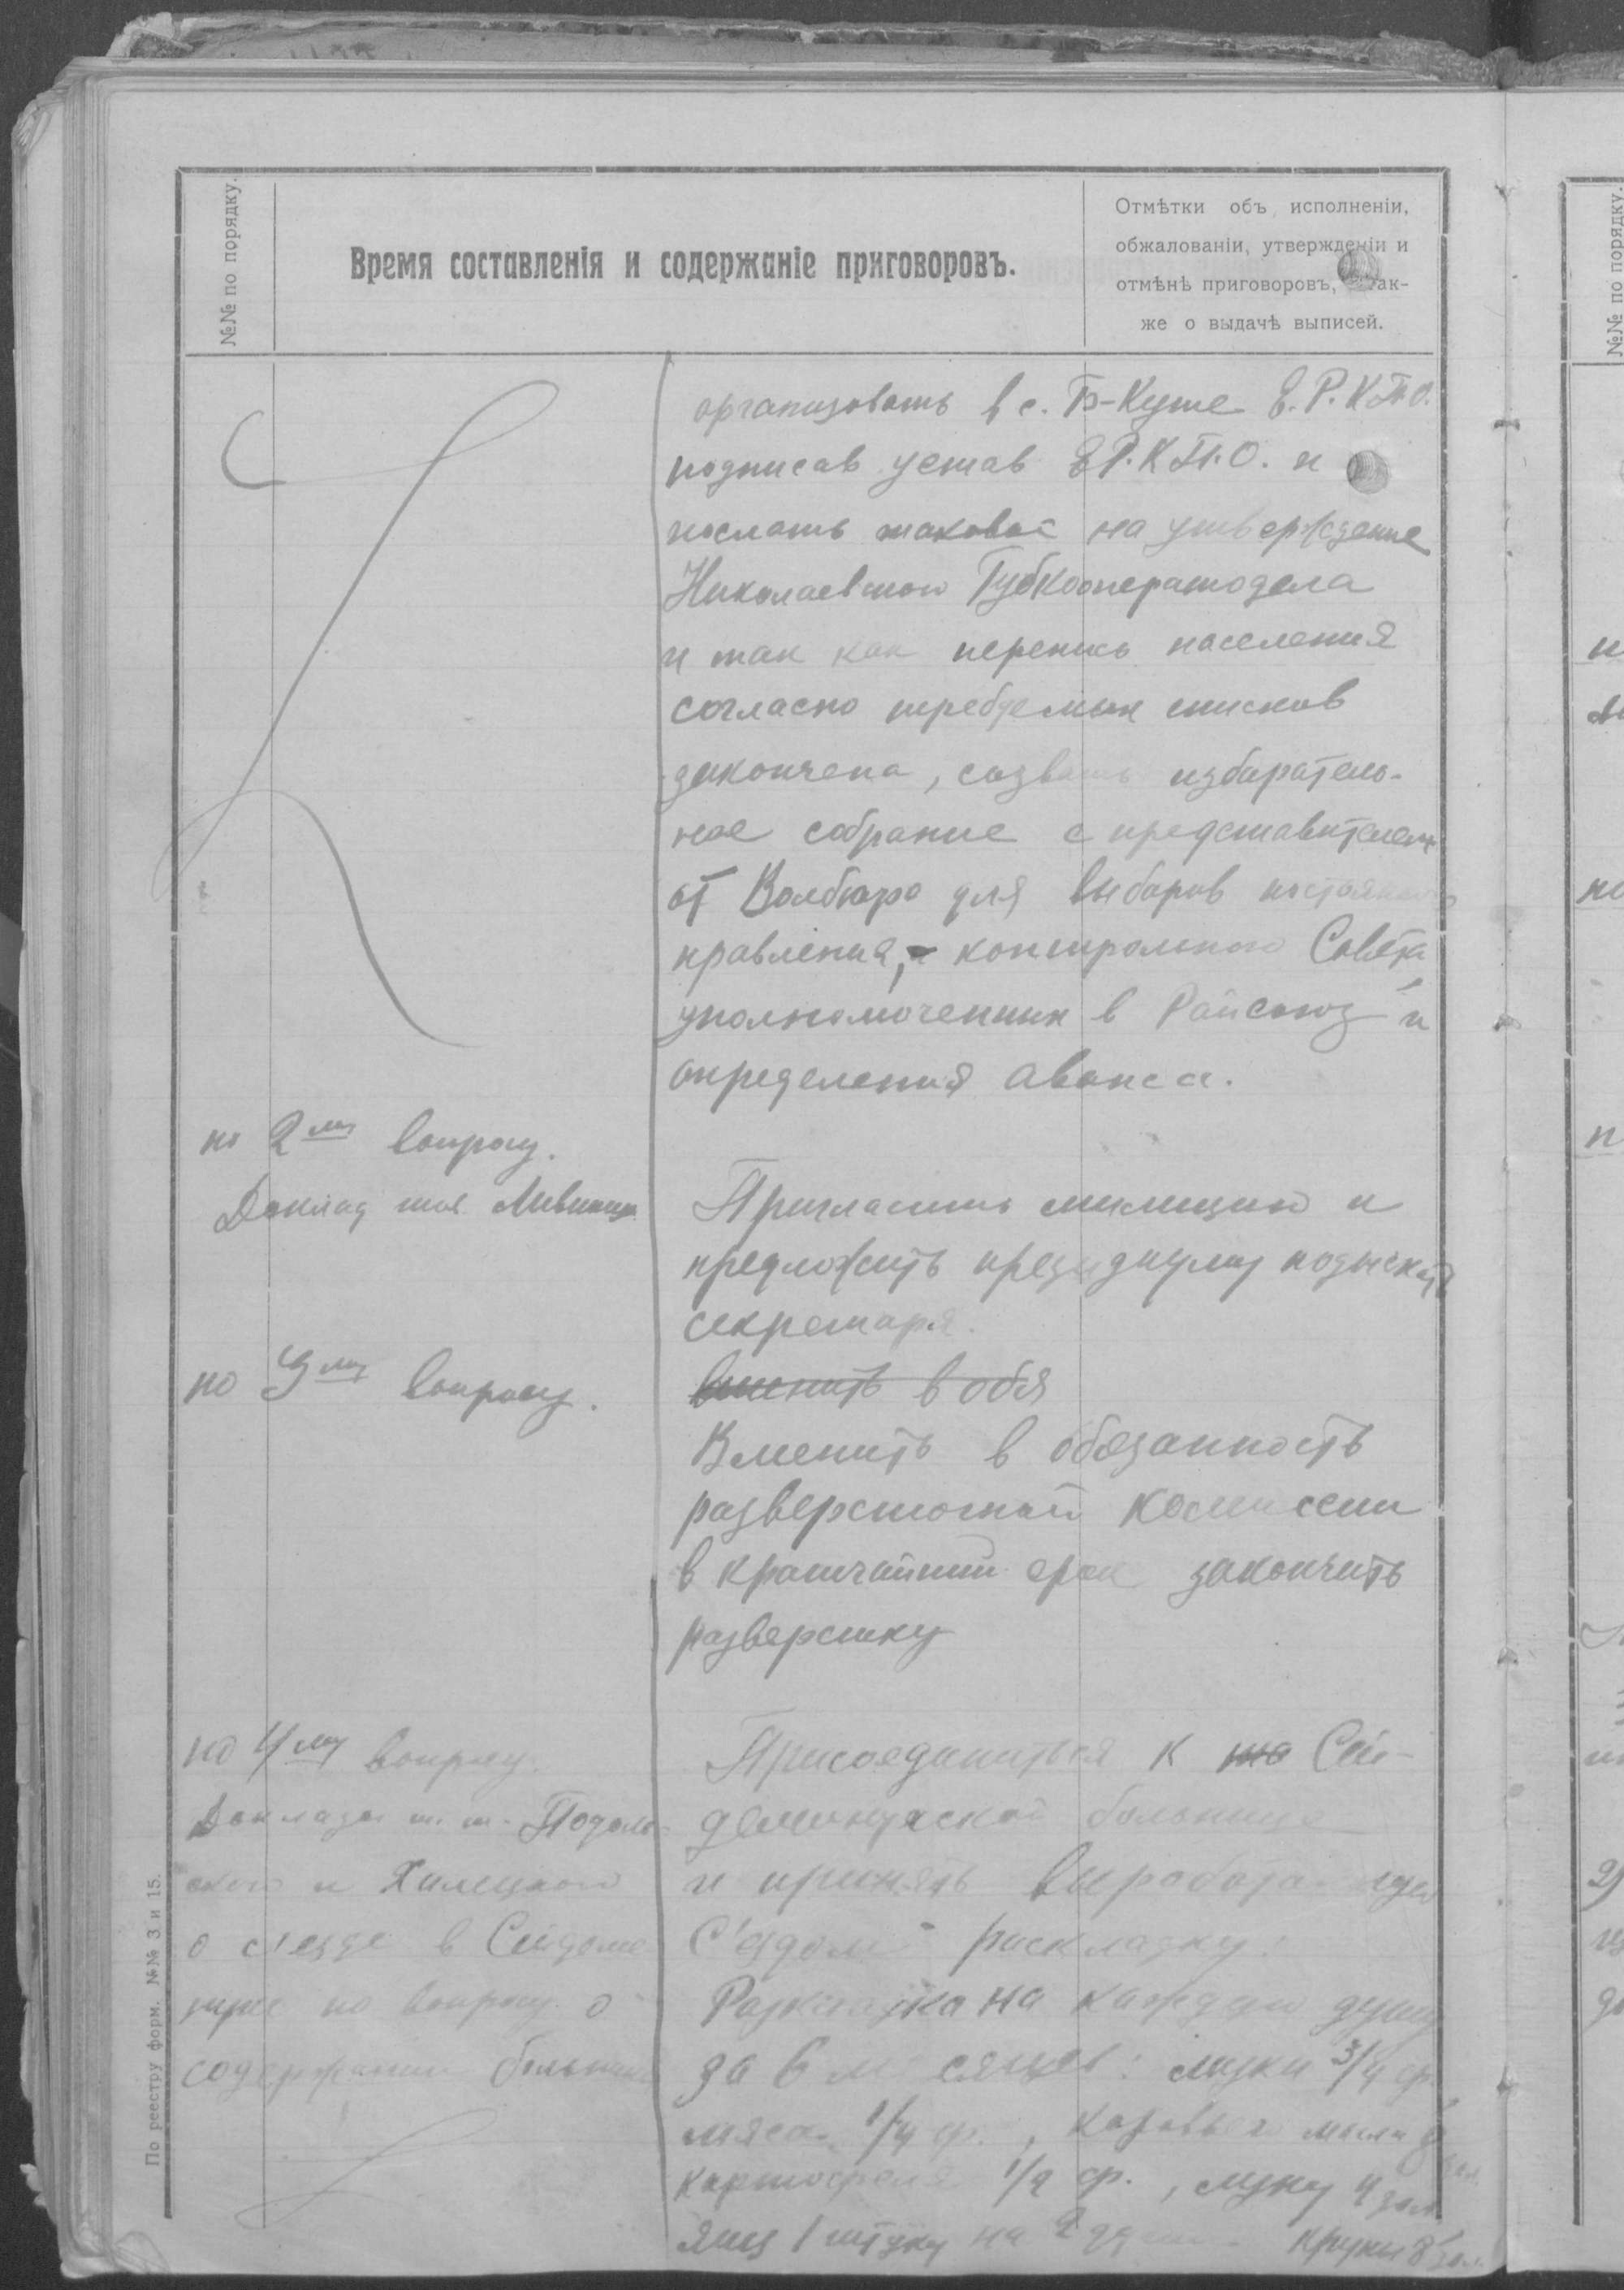 №№ по порядку.
Время составленія и содержаніе приговоровъ.
Отмѣтки объ исполненіи,
обжалованіи, утвержденіи и
отмѣнѣ приговоровъ, так-
же о выдачѣ выписей.
организовать в с. Б-Куте Е.Р.К.П.О.
подписав устав Е.Р.К.П.О. и
послать таковой на утверждение
Николаевского Губкооператодела
и так как перепись населения
согласно требуемых списков
закончена, созвать избиратель-
ное собрание с представителем
от Волбюро для выборов постоянного
правления, контрольного Совета
уполномоченных в Райсоюз и
определения аванса.
по 2му вопросу.
Доклад тов.
Пригласить милицию и
предложить президиуму подыскать
секретаря.
по 3му вопросу.
вменить в обя
Вменить в обязанность
разверсточной комиссии
в кратчайший срок закончить
разверстку
по 4му вопросу.
Доклады т. т. Подоль-
ского и Хмелецкого
о с'езде в Сейдеме-
нухе по вопросу о
содержании больницы
Присоединиться к Сей-
деменухской больнице
и принять выработанную
С'ездом раскладку:
Раскладка на каждую душу
за 6 месяцев: муки 3/4 ф.
мяса 1/4 ф., коровьего масла
картофеля 1/2 ф., луку 4 зол
яиц 1 штуку на 2 души крупы 8 зол.
По реестру форм. №№ 3 и 15.
№№ по порядку.